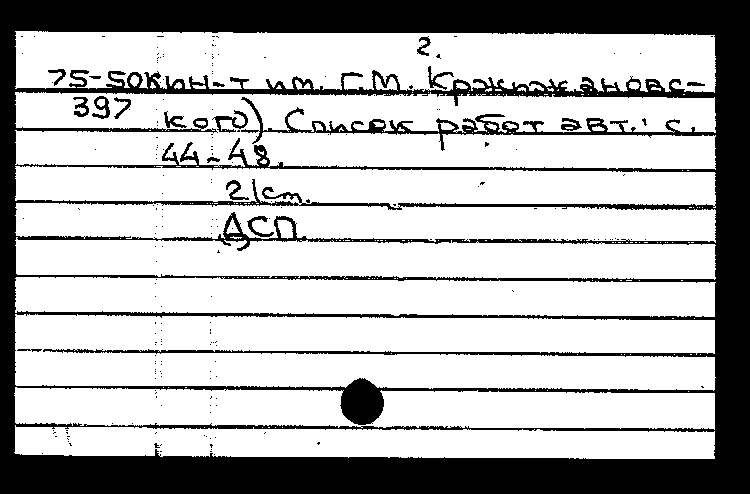 2.
75-50кин-т им. Г.М. Кржижановс-
397 кого). Список работ авт.: с.
44-48.
21 cm.
ДСП.